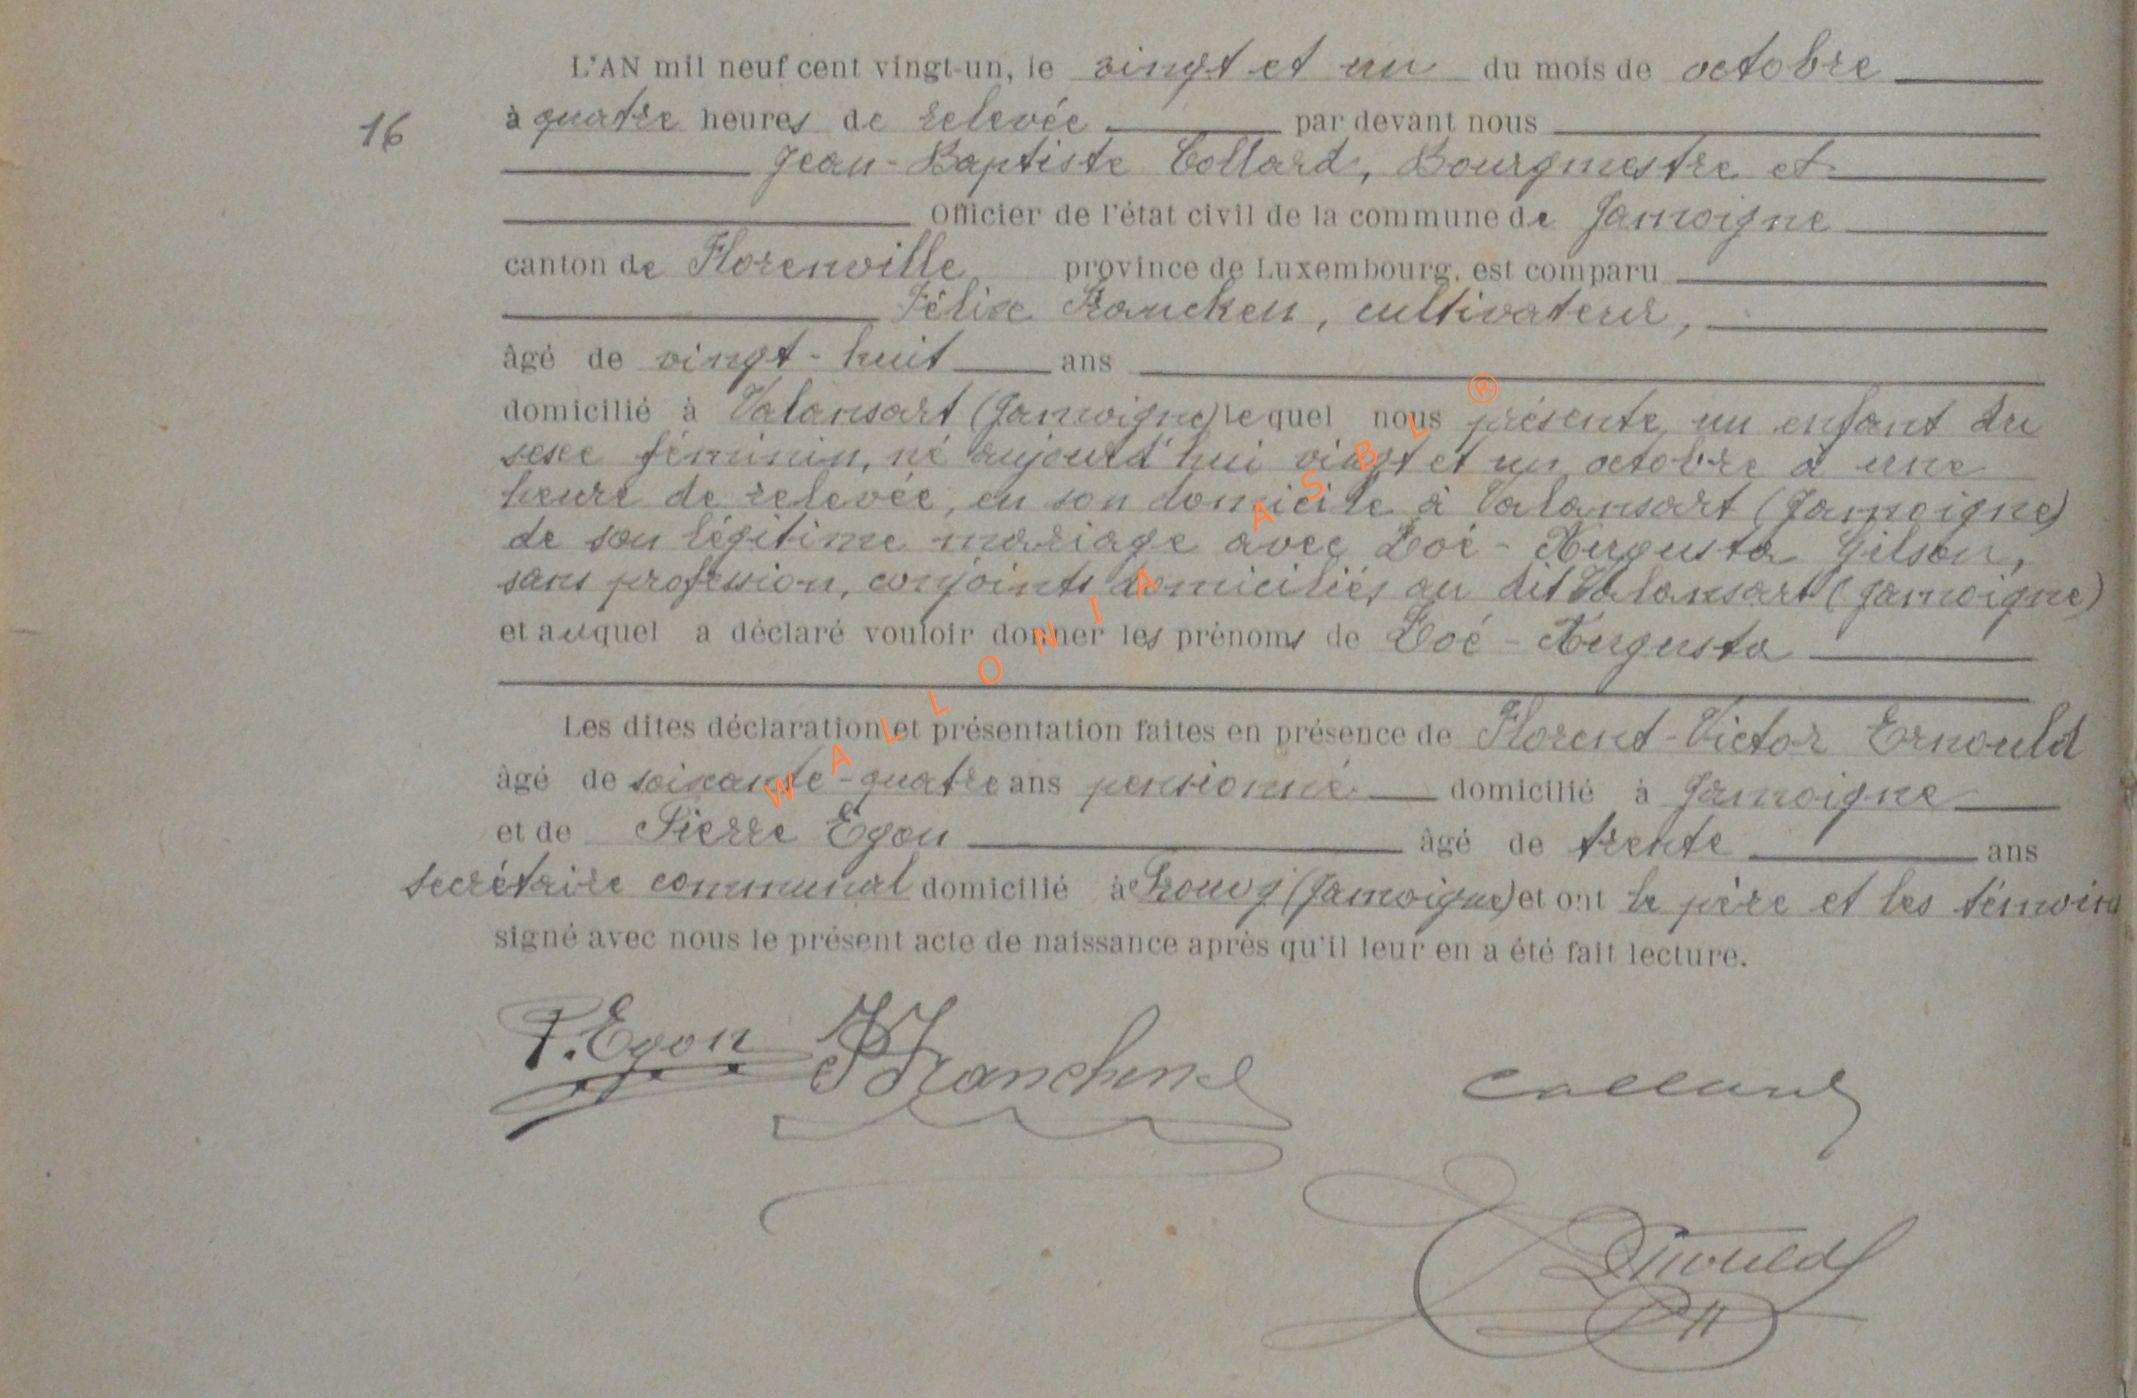 L'AN mil neuf cent vingt-un, le vingt et un du mois de octobre
16
à quatre heures de relevée par devant nous
Jean-Baptiste Collard, Bourgmestre et
Officier de l'état civil de la commune de Jamoigne
canton de Florenville province de Luxembourg, est comparu
Félix Francken, cultivateur,
âgé de vingt-huit ans
domicilié à Valansart (Jamoigne) lequel nous présente un enfant du
sexe féminin, né aujourd'hui vingt et un octobre à une
heure de relevée, en son domicile à Valansart (Jamoigne)
de son légitime mariage avec Zoé-Augusta Gilson,
sans profession, conjoints domiciliés au dit Valansart (Jamoigne)
et auquel a déclaré vouloir donner les prénoms de Zoé-Augusta
Les dites déclaration et présentation faites en présence de Florent-Victor Ernould
âgé de soixante-quatre ans pensionné domicilié à Jamoigne
et de Pierre Egon âgé de trente ans
secrétaire communal domicilié à Prouvy (Jamoigne) et ont le père et les témoins
signé avec nous le présent acte de naissance après qu'il leur en a été fait lecture.
P. Egon
Collard
Ernould
WALLONIA ASBL ®